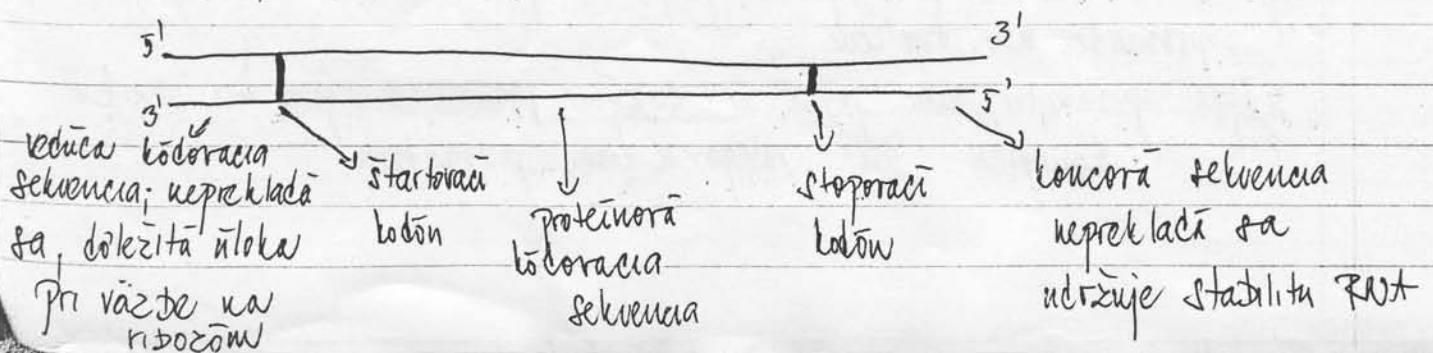 5' 3'
3' 5'
vedúca kódovacia
sekvencia; neprekladá
sa, dôležitá úloka
pri väzbe na
ribozóm
štartovací
kodón
proteínová
kódovacia
sekvencia
stopovací
kodón
koncová sekvencia
neprekladá sa
udržuje stabilitu RNA